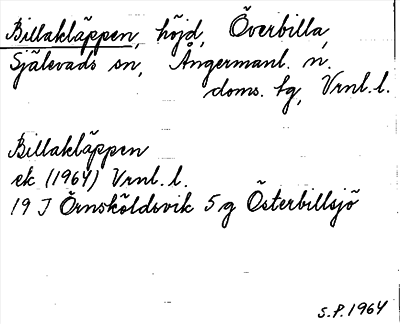 Billakläppen, höjd, Överbilla,
Själevads sn, Ångermanl. n.
doms. tg, Vrnl. l.
Billakläppen
ek (1964) Vrnl. l.
19 J Örnsköldsvik 5 g Österbillsjö
S.P. 1964